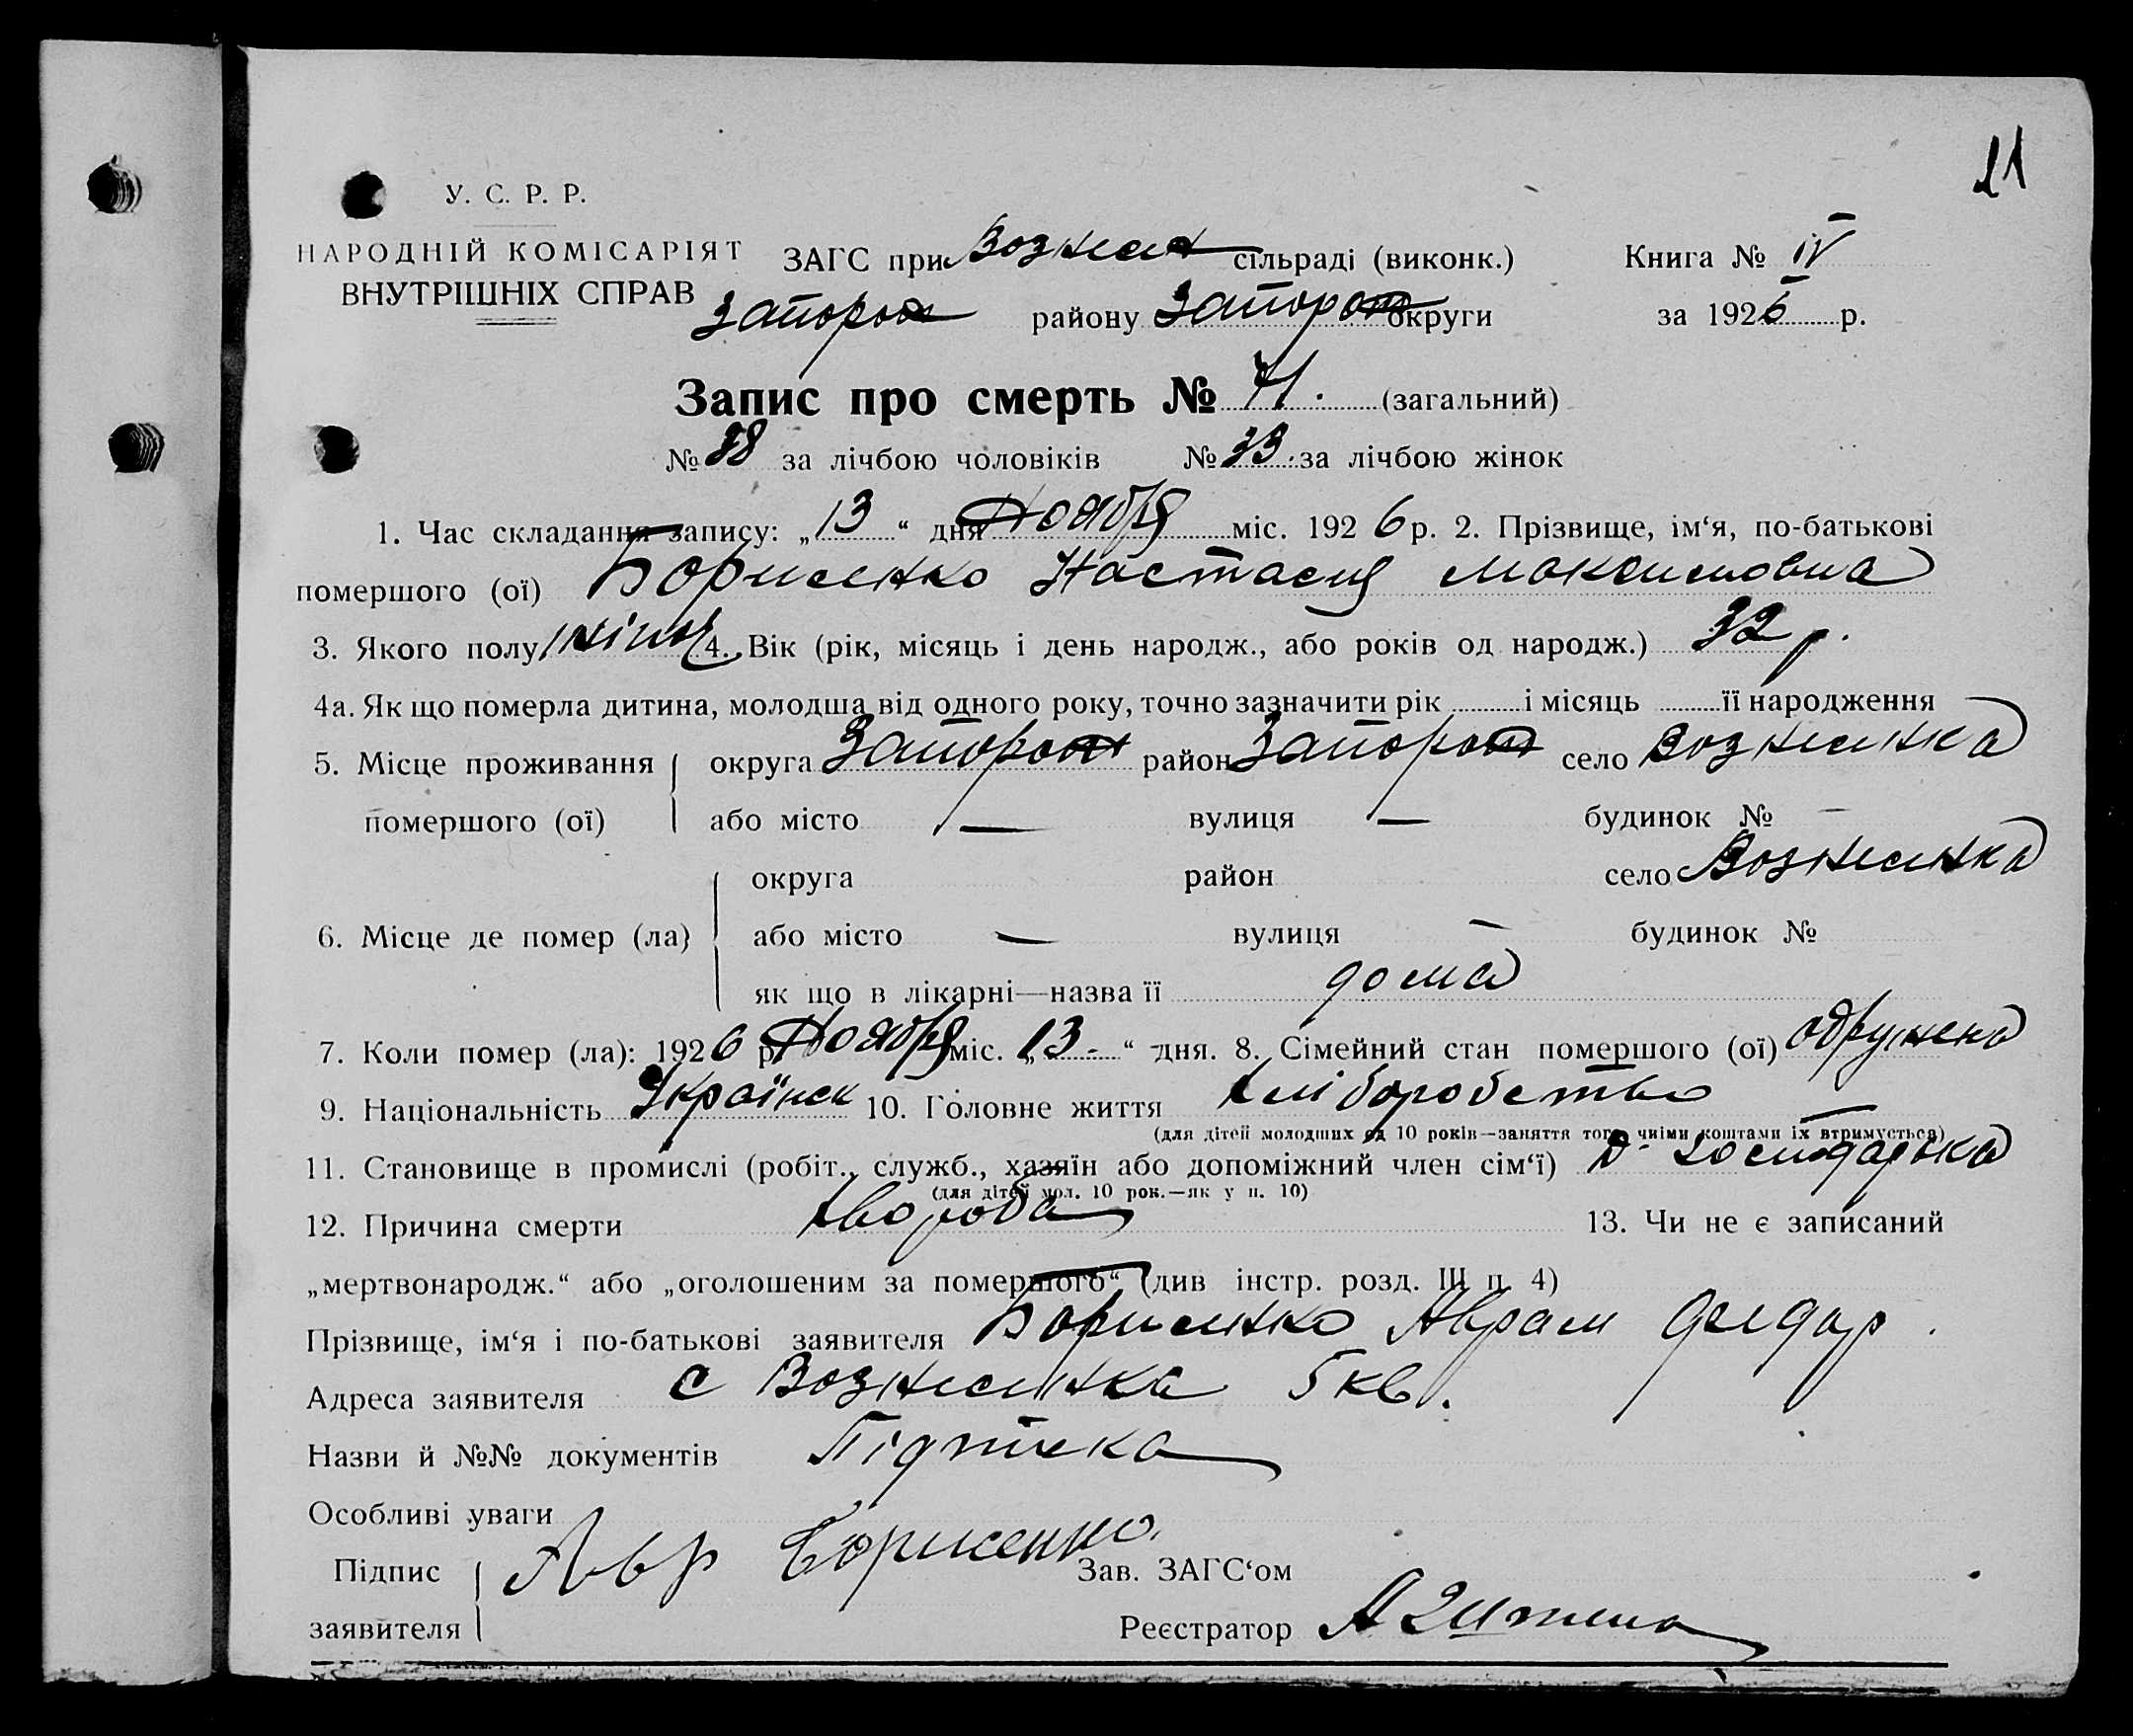 21
У. С. Р. Р.
НАРОДНІЙ КОМІСАРІЯТ
ВНУТРІШНІХ СПРАВ
ЗАГС при Вознесен сільраді (виконк.) Книга № IV
Запорож району Запорож округи за 1926 р.
Запис про смерть № 71. (загальний)
№ 38 за лічбою чоловіків № 33. за лічбою жінок
1. Час складання запису: „13“ дня Ноября міс. 1926 р. 2. Прізвище, ім‘я, по-батькові
помершого (ої) Борисенко Настасия Максимовна
3. Якого полу жіноч 4. Вік (рік, місяць і день народж., або років од народж.) 32 р.
4а. Як що померла дитина, молодша від одного року, точно зазначити рік і місяць її народження
5. Місце проживання округа Запорож район Запорож село Вознесенка
помершого (ої) або місто — вулиця — будинок № —
округа район село Вознесенка
6. Місце де помер (ла) або місто — вулиця — будинок №
як що в лікарні—назва її дома
7. Коли помер (ла): 1926 р. Ноября міс. „13.“ дня. 8. Сімейний стан помершого (ої) одружена
9. Національність Українск 10. Головне життя хліборобство
(для дітей молодших од 10 років—заняття того, чиїми коштами їх втримується)
11. Становище в промислі (робіт., служб., хазяїн або допоміжний член сім‘ї) Д-господарька
(для дітей мол. 10 рок.—як у п. 10)
12. Причина смерти хвороба 13. Чи не є записаний
„мертвонародж.“ або „оголошеним за помершого“ (див інстр. розд. III п. 4)
Прізвище, ім‘я і по-батькові заявителя Борисенко Аврам Федор.
Адреса заявителя с Вознесенка 5 кв.
Назви й №№ документів Підписка
Особливі уваги
Підпис Авр Борисенко. Зав. ЗАГС‘ом
заявителя Реєстратор